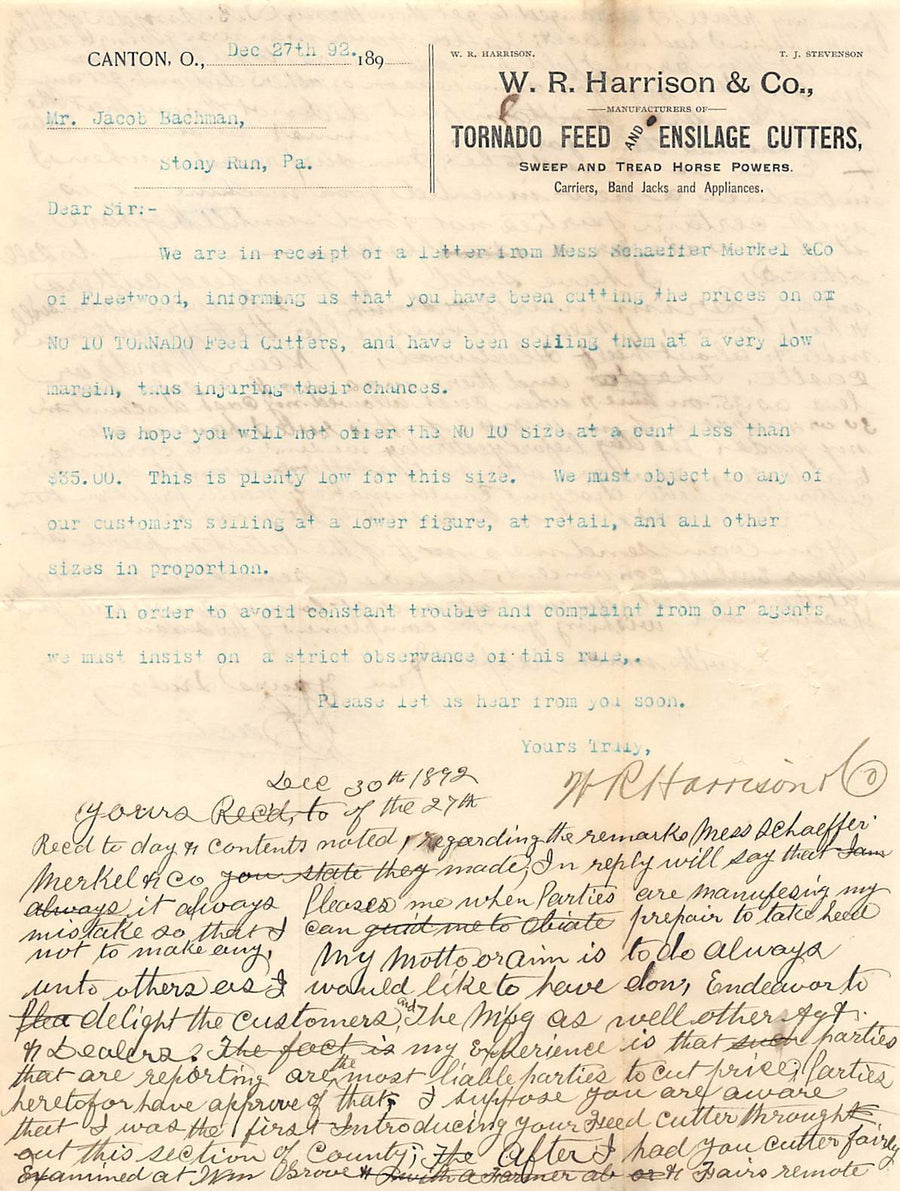 CANTON, O., Dec 27th 92. 189
W. R. HARRISON. T. J. STEVENSON
W. R. Harrison & Co.,
MANUFACTURERS OF
TORNADO FEED AND ENSILAGE CUTTERS,
SWEEP AND TREAD HORSE POWERS.
Carriers, Band Jacks and Appliances.
Mr. Jacob Bachman,
Stony Run, Pa.
Dear Sir:-
We are in receipt of a letter from Mess Schaeffer Merkel &Co
of Fleetwood, informing us that you have been cutting the prices on or
NO 10 TORNADO Feed Cutters, and have been selling them at a very low
margin, thus injuring their chances.
We hope you will not offer the NO 10 Size at a cent less than
$35.00. This is plenty low for this size. We must object to any of
our customers selling at a lower figure, at retail, and all other
sizes in proportion.
In order to avoid constant trouble and complaint from our agents
we must insist on a strict observance of this rule,.
Please let us hear from you soon.
Yours Truly,
W R Harrison & Co
Dec 30th 1892
Yours Rec'd, to of the 27th
Recd to day & contents noted, regarding the remarks Mess Schaeffer
Merkel & Co you state they made, In reply will say that I am
always it always Pleases me when Parties are manufesing my
mistake so that I can guid me to obiate prepair to take heed
not to make any, My Motto or aim is to do always
unto others as I would like to have don, Endeavor to
Plea delight the customers, and The Mfg as well other Agt.
& Dealers. The fact is my Experience is that such parties
that are reporting are the most liable parties to cut price, Parties
heretofor have approve of that, I suppose you are aware
that I was the first Introducing your Feed cutter throught
out this section of County; The After I had you cutter fairly
Examined at Wm Grove & with a Farmer ab or & Fairs remote